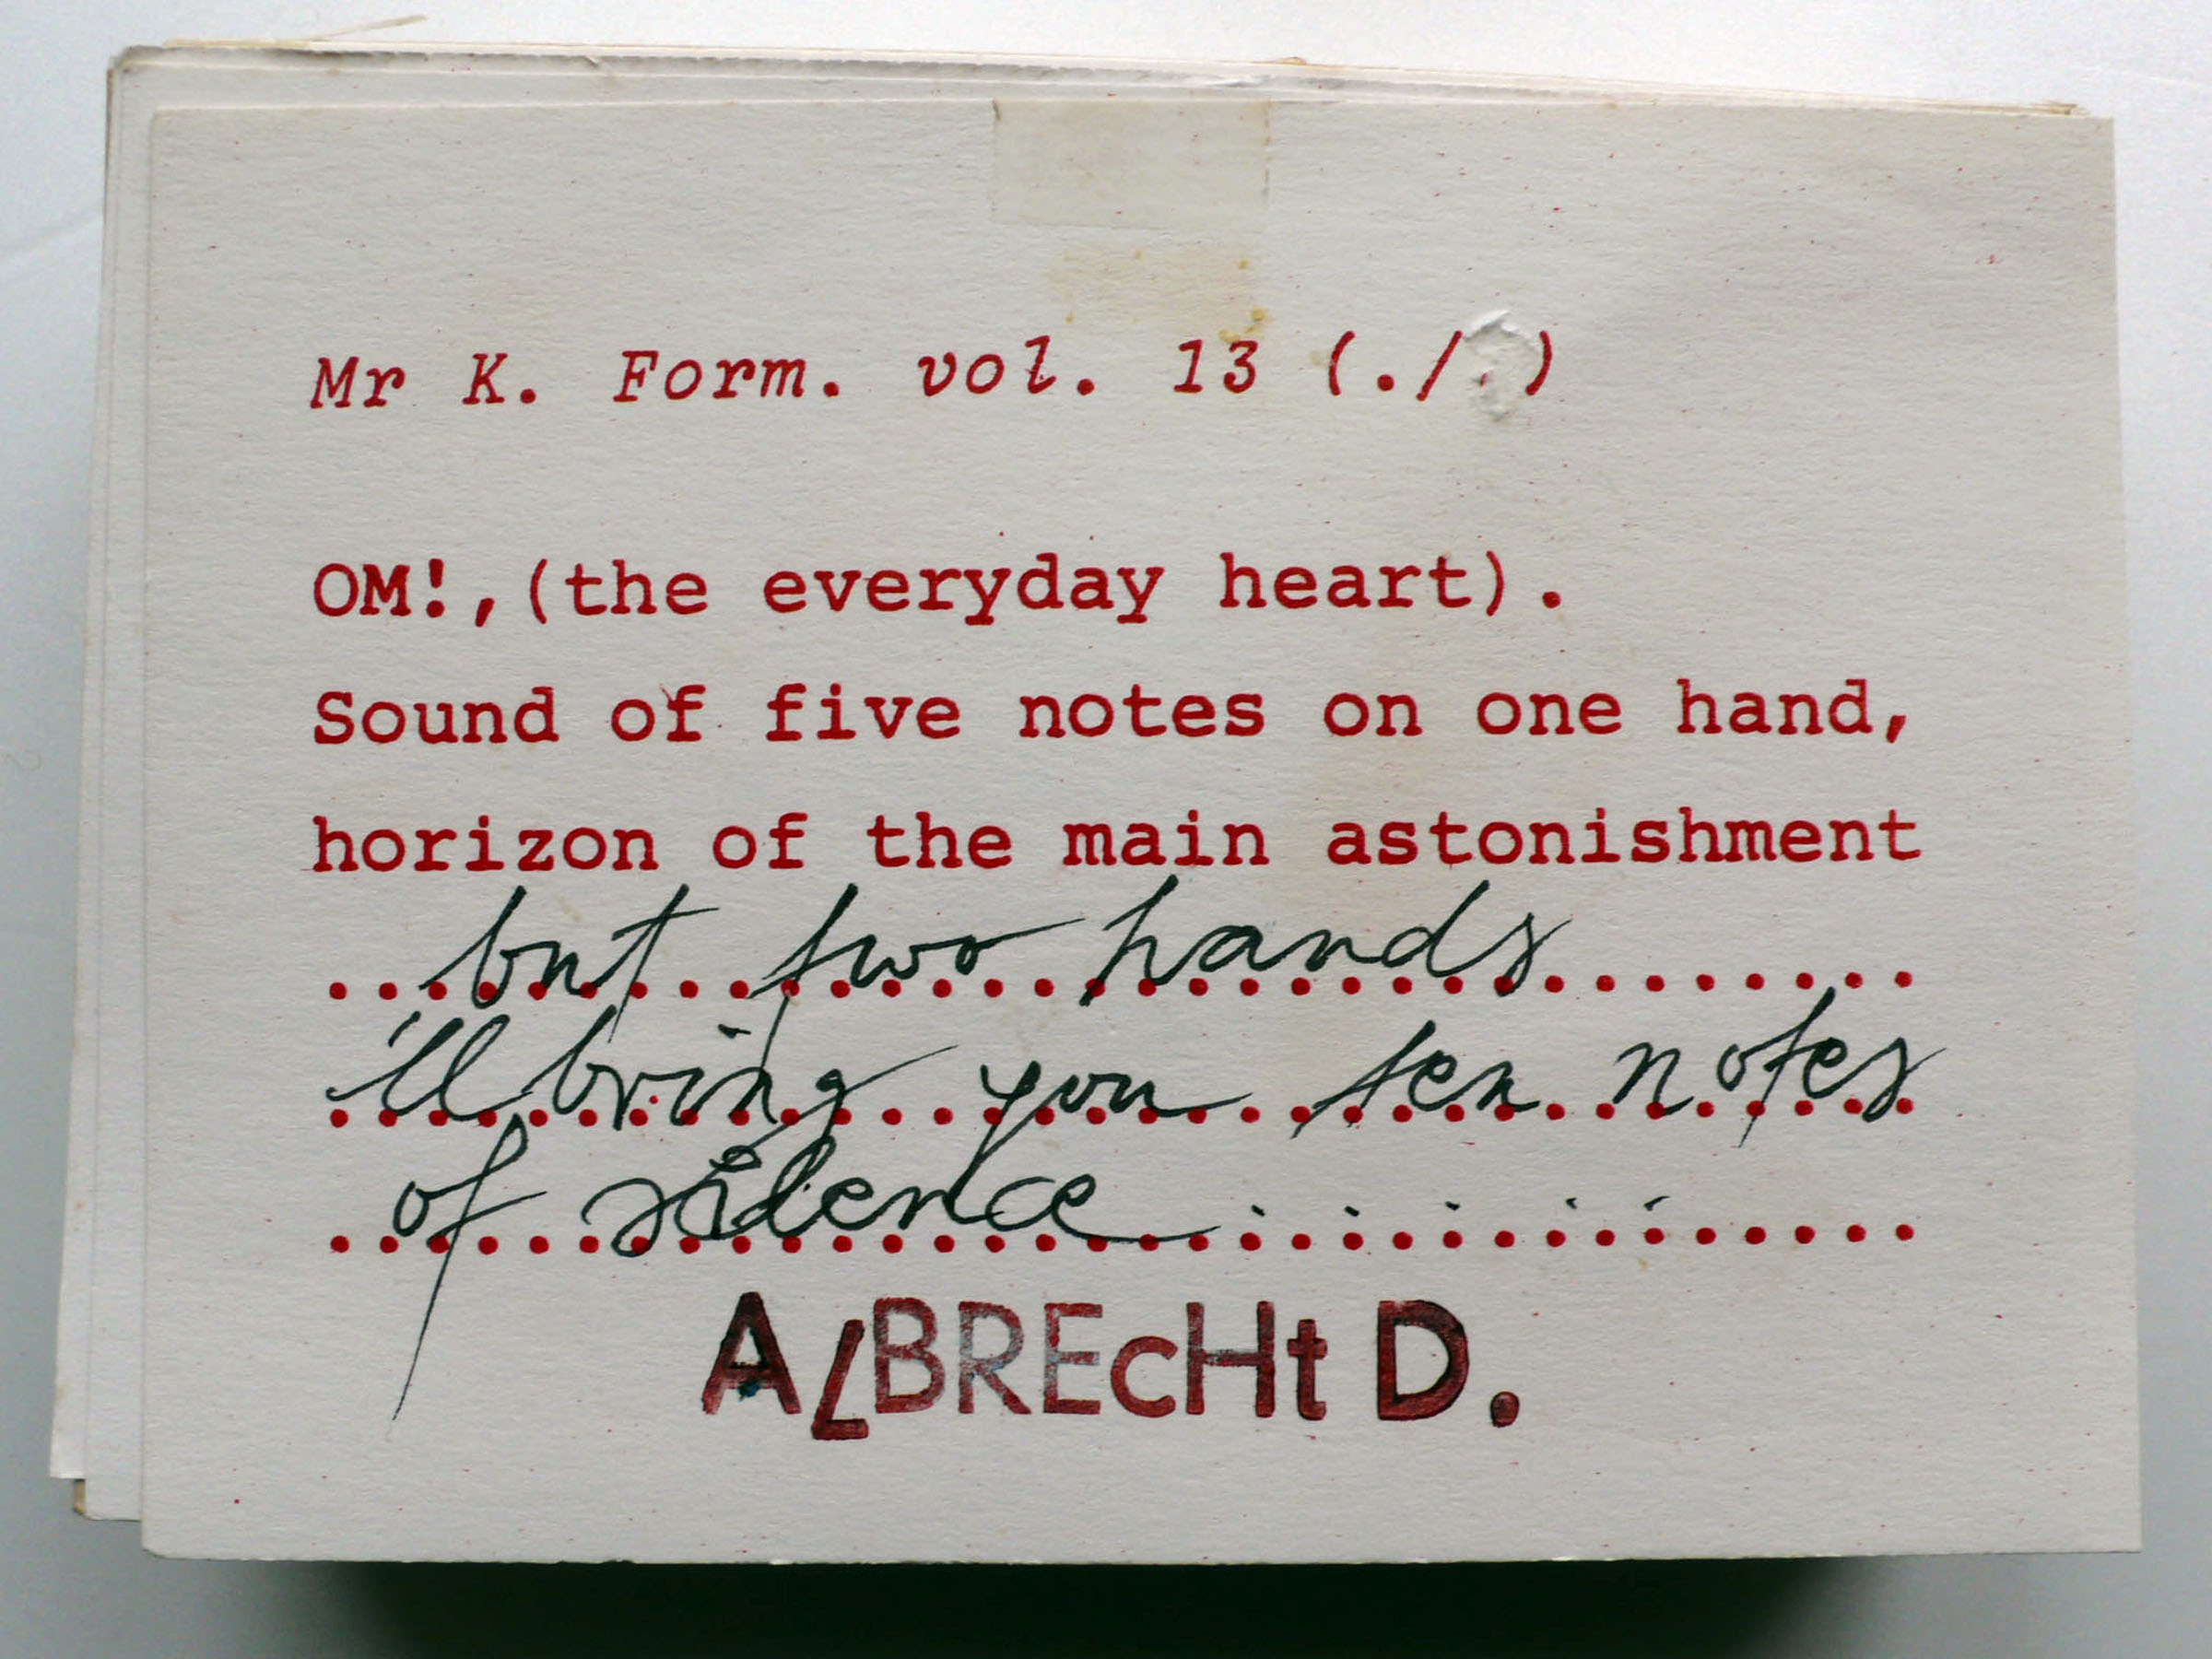 Mr K. Form. vol. 13 (./ )
OM!,(the everyday heart).
Sound of five notes on one hand,
horizon of the main astonishment
but two hands
'll bring you ten notes
of silence . . . . . .
ALBREcHt D.